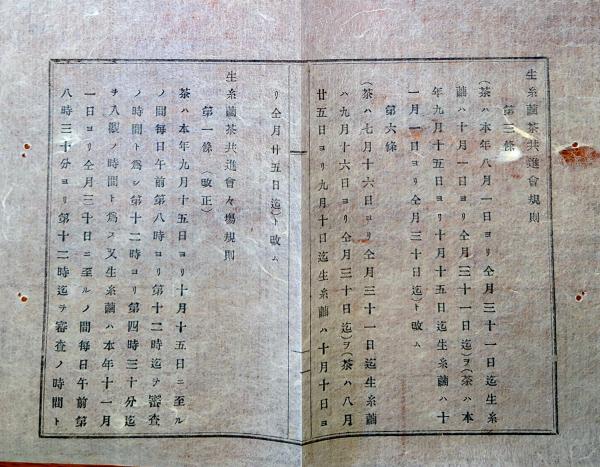 生糸繭茶共進會規則
第三條
(茶ハ本年八月一日ヨリ仝月三十一日迄生糸
繭ハ十月一日ヨリ仝月三十一日迄)ヲ(茶ハ本
年九月十五日ヨリ十月十五日迄生糸繭ハ十
一月一日ヨリ仝月三十日迄)ト改ム
第六條
(茶ハ七月十六日ヨリ仝月三十一日迄生糸繭
ハ九月十六日ヨリ仝月三十日迄)ヲ(茶ハ八月
廿五日ヨリ九月十日迄生糸繭ハ十月十日ヨ
リ仝月廿五日迄)ト改ム
生糸繭茶共進會々塲規則
第一條 (改正)
茶ハ本年九月十五日ヨリ十月十五日ニ至ル
ノ間毎日午前第八時ヨリ第十二時迄ヲ審査
ノ時間ト爲シ第十二時ヨリ第四時三十分迄
ヲ入觀ノ時間ト爲ス又生糸繭ハ本年十一月
一日ヨリ仝月三十日ニ至ルノ間毎日午前第
八時三十分ヨリ第十二時迄ヲ審査ノ時間ト